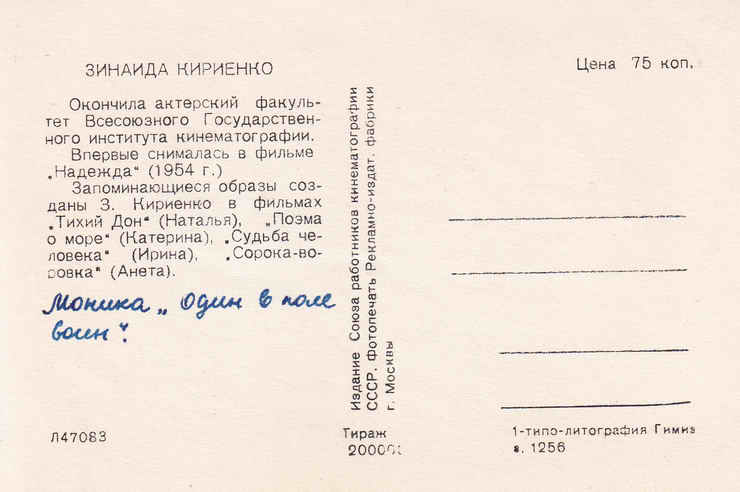 ЗИНАИДА КИРИЕНКО
Окончила актерский факуль-
тет Всесоюзного Государствен-
ного института кинематографии.
Впервые снималась в фильме
„Надежда“ (1954 г.)
Запоминающиеся образы соз-
даны З. Кириенко в фильмах
„Тихий Дон“ (Наталья), „Поэма
о море“ (Катерина), „Судьба че-
ловека“ (Ирина), „Сорока-во-
ровка“ (Анета).
Моника „Один в поле
воин“.
Л47083
Издание Союза работников кинематографии
СССР. Фотопечать Рекламно-издат. фабрики
г. Москвы
Тираж
200000
Цена 75 коп.
1-типо-литография Гимиз
з. 1256